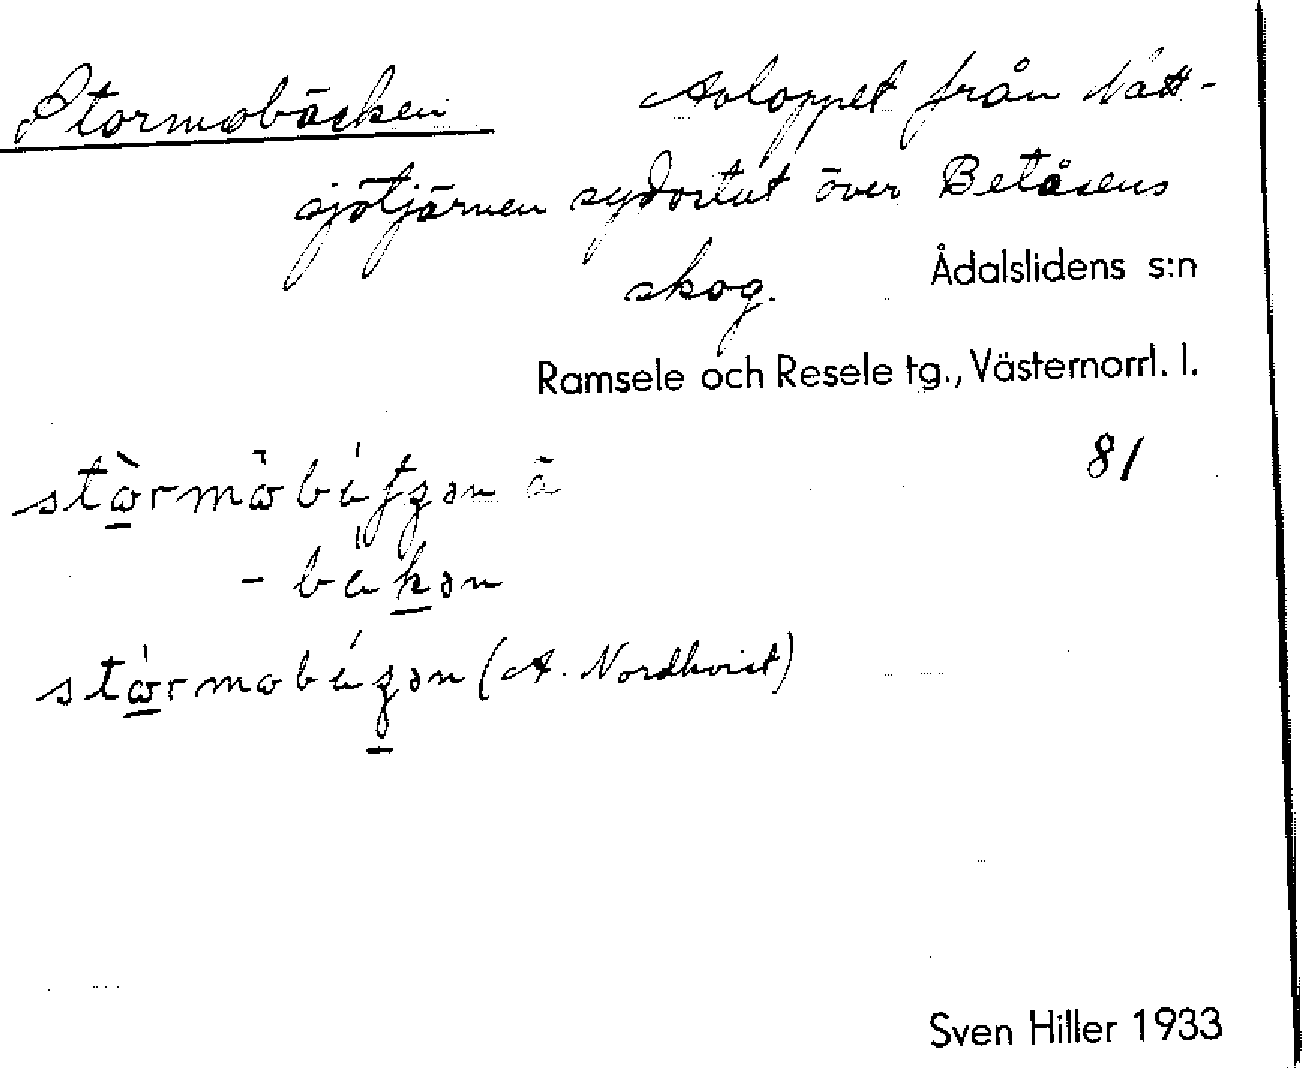 Stormobäcken Avloppet från Nätt-
sjötjärnen sydostut över Betåsens
skog.
Ådalslidens s:n
Ramsele och Resele tg., Västernorrl. l.
81
(A. Nordkvist)
Sven Hiller 1933